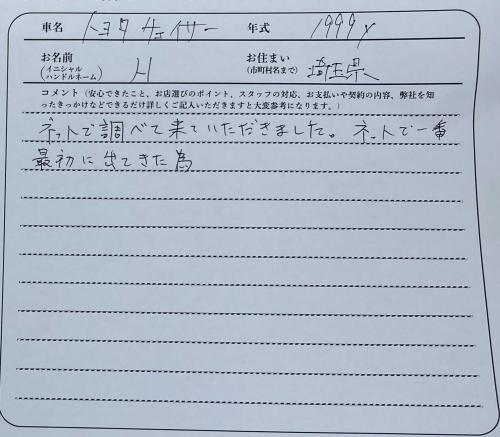 車名 トヨタ チェイサー 年式 1999y
お名前 (イニシャル ハンドルネーム) H お住まい (市町村名まで) 埼玉県
コメント（安心できたこと、お店選びのポイント、スタッフの対応、お支払いや契約の内容、弊社を知
ったきっかけなどできるだけ詳しくご記入いただきますと大変参考になります。）
ネットで調べて来ていただきました。ネットで一番
最初に出てきた為